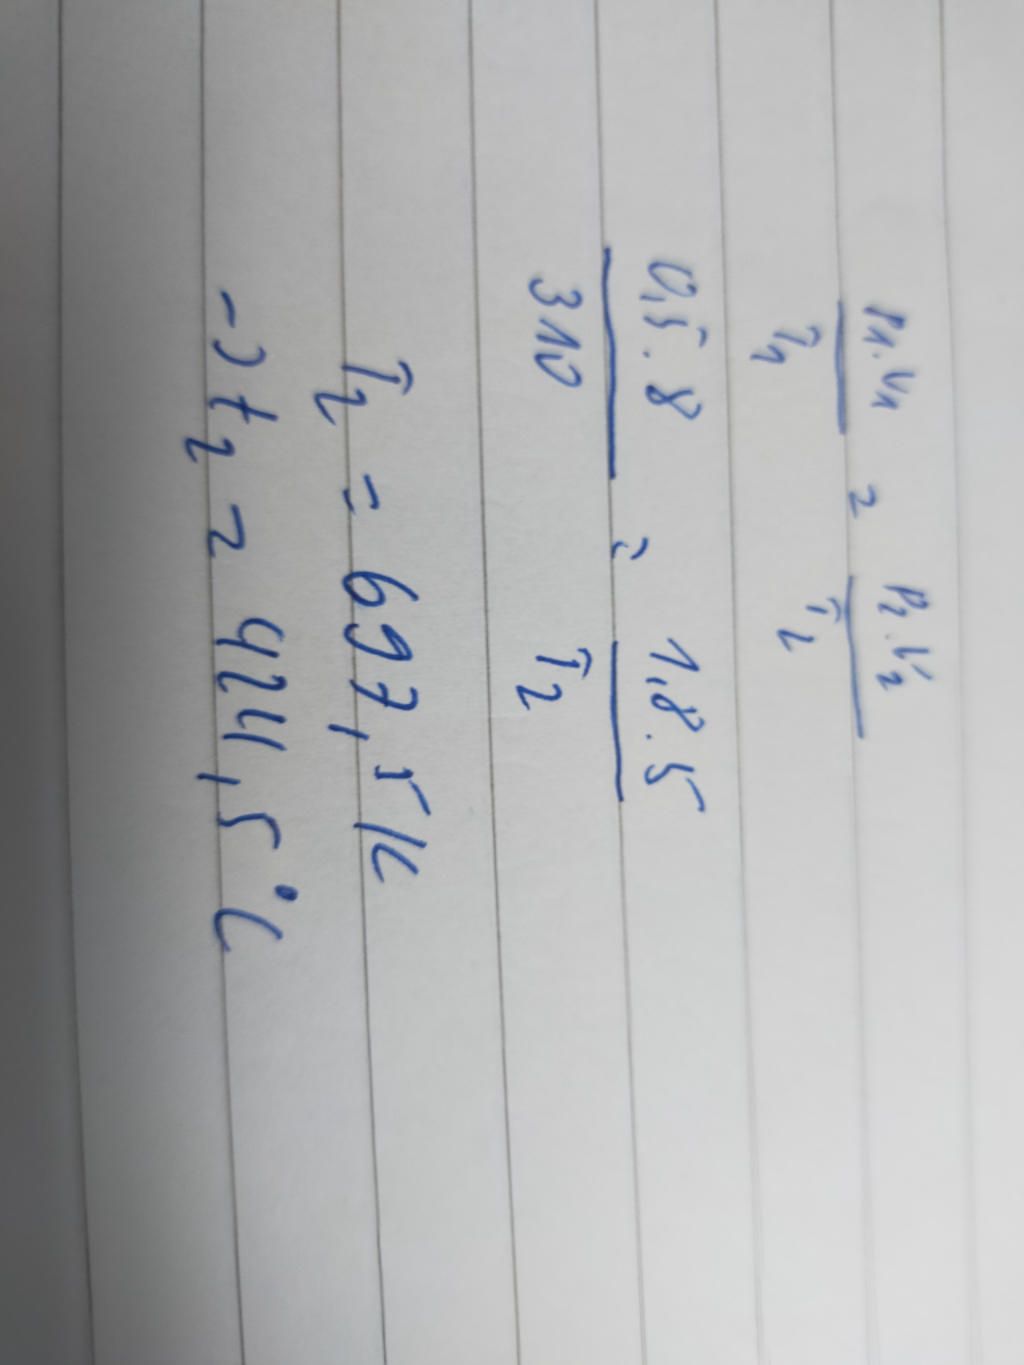 P1.V1 / T1 = P2.V2 / T2
0,5.8 / 310 = 1,8.5 / T2
T2 = 697,5K
-> t2 = 424,5°C